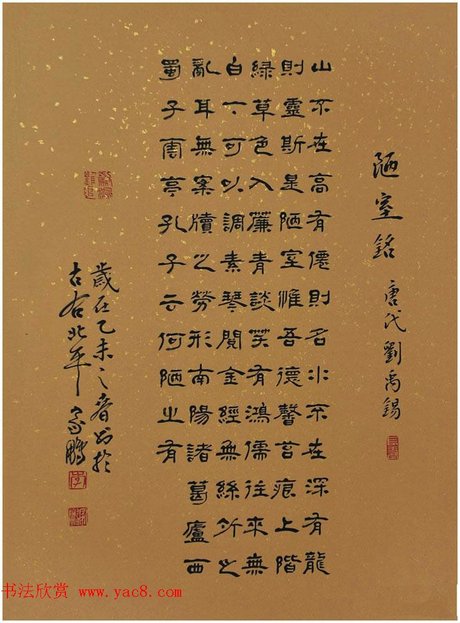 陋室銘 唐代劉禹錫
山不在高有僊則名水不在深有龍
則靈斯是陋室惟吾德馨苔痕上階
綠草色入簾青談笑有鴻儒往來無
白丁可以調素琴閱金經無絲竹之
亂耳無案牘之勞形南陽諸葛廬西
蜀子雲亭孔子云何陋之有
歲在乙未之春书於
古右北平家鵬
书法欣赏 www.yac8.com